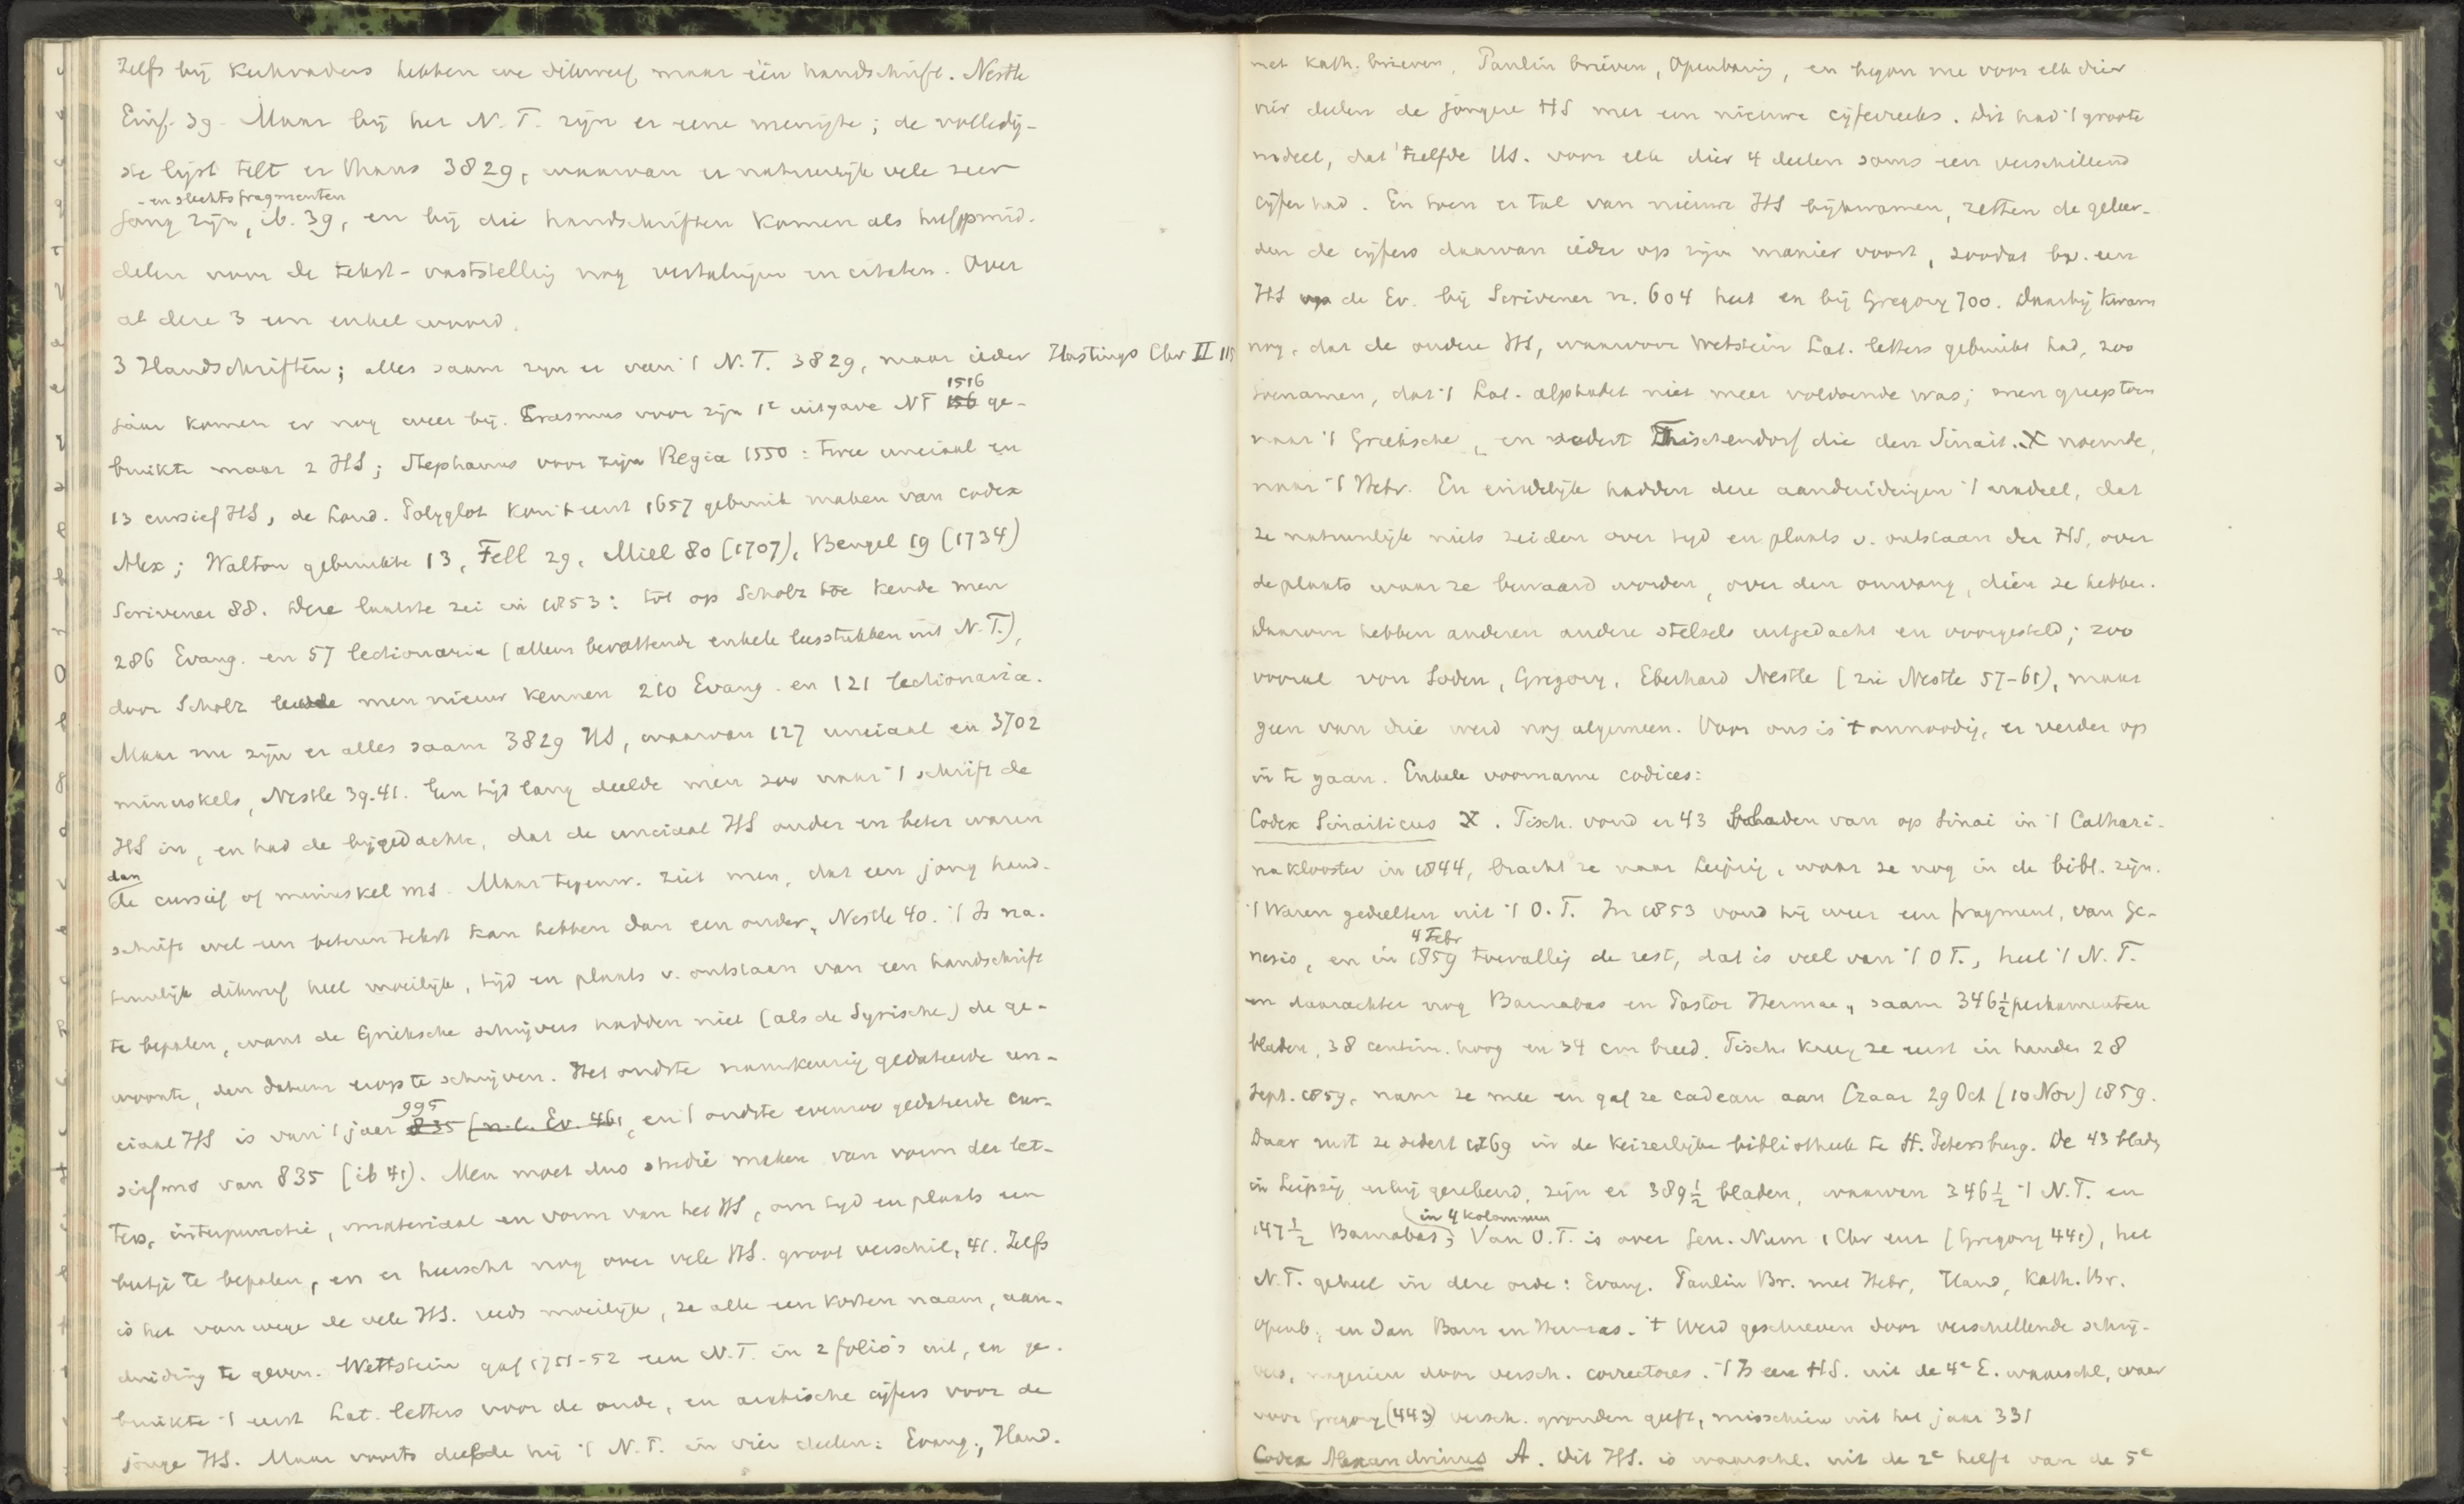 Zelfs bij Kerkvaders hebben we dikwerf maar één handschrift. Nestle
Einf. 39. Maar bij het N.T. zijn er eene menigte; de volledig-
ste lijst telt er thans 3829, waarvan er natuurlijk vele zeer
- en slechts fragmenten
jong zijn, ib. 39, en bij die handschriften komen als hulpmid-
delen voor de tekst-vaststelling nog vertalingen en citaten. Over
al deze 3 een enkel woord.
3 Handschriften; alles saam zijn er van 't N.T. 3829, maar ieder Hastings Chr II 115
jaar komen er nog weer bij. Erasmus voor zijn 1e uitgave NT 156 1516 ge-
bruikte maar 2 HS; Stephanus voor zijn Regia 1550: twee unciaal en
13 cursief HS, de Lond. Polyglot kon 't eerst 1657 gebruik maken van codex
Alex; Walton gebruikte 13, Fell 29, Mill 80 (1707), Bengel 19 (1734)
Scrivener 88. Deze laatste zei in 1853: tot op Scholz toe kende men
286 Evang. en 57 lectionaria (alleen bevattende enkele leesstukken uit N.T.),
door Scholz leerde men nieuw kennen 210 Evang. en 121 lectionaria.
Maar nu zijn er alles saam 3829 HS, waarvan 127 unciaal en 3702
minuskels, Nestle 39.41. Een tijd lang deelde men zoo naar 't schrift de
HS in, en had de bijgedachte, dat de unciaal HS ouder en beter waren
dan
de cursief of minuskel ms. Maar tegenw. ziet men, dat een jong hand-
schrift wel een beteren tekst kan hebben dan een ouder, Nestle 40. 't Is na-
tuurlijk dikwerf heel moeilijk, tijd en plaats v. ontstaan van een handschrift
te bepalen, want de Grieksche schrijvers hadden niet (als de Syrische) de ge-
woonte, den datum erop te schrijven. Het oudste nauwkeurig gedateerde un-
995
ciaal HS is van 't jaar 835 (n.l. Ev. 461, en 't oudste evenzoo gedateerde cur-
sief ms van 835 (ib 41). Men moet dus studie maken van vorm der let-
ters, interpunctie, materiaal en vorm van het HS, om tijd en plaats een
beetje te bepalen, en er heerscht nog over vele HS. groot verschil, 41. Zelfs
is het vanwege de vele HS. reeds moeilijk, ze alle een korten naam, aan-
duiding te geven. Wettstein gaf 1751-52 een N.T. in 2 folio's uit, en ge-
bruikte 't eerst Lat. letters voor de oude, en arabische cijfers voor de
jonge HS. Maar voorts deelde hij 't N.T. in vier deelen: Evang., Hand.
met Kath. brieven, Paulin brieven, Openbaring, en begon nu voor elk dier
vier deelen de jongere HS met een nieuwe cijferreeks. Dit had 't groote
nadeel, dat 'tzelfde HS. voor elk dier 4 deelen soms een verschillend
cijfer had. En toen er tal van nieuwe HS bijkwamen, zetten de geleer-
den de cijfers daarvan ieder op zijn manier voort, zoodat bv. een
HS v. de Ev. bij Scrivener nr. 604 heet en bij Gregory 700. Daarbij kwam
nog, dat de oudere HS, waarvoor Wetstein Lat. letters gebruikt had, zoo
toenamen, dat 't Lat. alphabet niet meer voldoende was; men greep toen
naar 't Grieksche, en sedert Tischendorf die den Sinait. א noemde,
naar 't Hebr. En eindelijk hadden deze aanduidingen 't nadeel, dat
ze natuurlijk niets zeiden over tijd en plaats v. ontstaan der HS, over
de plaats waar ze bewaard worden, over den omvang, dien ze hebben.
Daarom hebben anderen andere stelsels uitgedacht en voorgesteld; zoo
vooral von Soden, Gregory, Eberhard Nestle (zie Nestle 57-61), maar
geen van drie werd nog algemeen. Voor ons is 't onnoodig, er verder op
in te gaan. Enkele voorname codices:
Codex Sinaiticus א. Tisch. vond er 43 bladen van op Sinai in 't Cathari-
naklooster in 1844, bracht ze naar Leipzig, waar ze nog in de bibl. zijn.
't Waren gedeelten uit 't O.T. In 1853 vond hij weer een fragment, van Ge-
4 Febr
nesis, en in 1859 toevallig de rest, dat is veel van 't OT., heel 't N.T.
en daarachter nog Barnabas en Pastor Hermae, saam 346½ perkamenten
bladen, 38 centim. hoog en 34 cm breed. Tisch. kreeg ze eerst in handen 28
Sept. 1859, nam ze mee en gaf ze cadeau aan Czaar 29 Oct (10 Nov) 1859.
Daar rust ze sedert 1869 in de Keizerlijke bibliotheek te St. Petersburg. De 43 bladen
in Leipzig erbij gerekend, zijn er 389½ bladen, waarvan 346½ 't N.T. en
in 4 kolommen
147½ Barnabas; Van O.T. is over Gen. Num 1 Chr enz (Gregory 441), het
N.T. geheel in deze orde: Evang. Paulin Br. met Hebr, Hand, Kath. Br.
Openb; en dan Barn en Hermas. 't Werd geschreven door verschillende schrij-
vers, nagezien door versch. correctores. 't Is een HS. uit de 4e E. waarschl., waar
voor Gregory (443) versch. gronden geeft, misschien uit het jaar 331
Codex Alexandrinus A. Dit HS. is waarschl. uit de 2e helft van de 5e